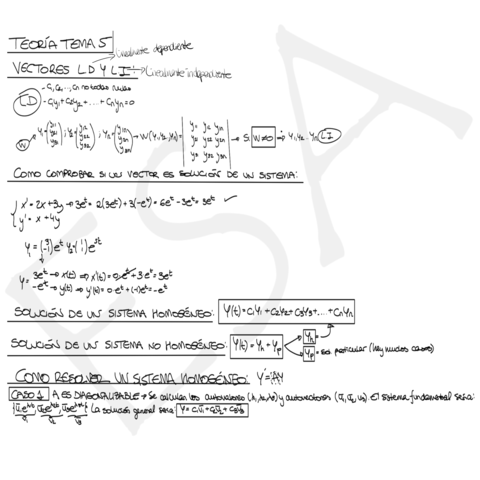 TEORÍA TEMA 5
Linealmente dependiente
VECTORES LD Y LI: Linealmente independiente
LD
- C₁, C₂, ..., Cn no todas nulas
- C₁Y₁ + C₂Y₂ + ... + CnYn = 0
W
W(Y₁, Y₂, Y₃) =
→ Si W≠0 → Y₁, Y₂, ... Yn LI
COMO COMPROBAR SI UN VECTOR ES SOLUCIÓN DE UN SISTEMA:
x' = 2x + 3y → 3eᵗ = 2(3eᵗ) + 3(-eᵗ) = 6eᵗ - 3eᵗ = 3eᵗ ✓
y' = x + 4y
3eᵗ → x(t) → x'(t) = 0·eᵗ + 3·eᵗ = 3eᵗ
-eᵗ → y(t) → y'(t) = 0·eᵗ + (-1)eᵗ = -eᵗ
SOLUCIÓN DE UN SISTEMA HOMOGÉNEO: Y(t) = C₁Y₁ + C₂Y₂ + C₃Y₃ + .... + CnYn
SOLUCIÓN DE UN SISTEMA NO HOMOGÉNEO: Y(t) = Yh + Yp
Yh
Yp = sol. particular (Hay muchos casos)
COMO RESOLVER UN SISTEMA HOMOGÉNEO: Y' = AY
CASO 1 A ES DIAGONALIZABLE → Se calculan los autovalores (λ₁, λ₂, λ₃) y autovectores (v̄₁, v̄₂, v̄₃) El sistema fundamental sería:
La solución general será: Y = C₁v̄₁ + C₂v̄₂ + C₃v̄₃
ESA